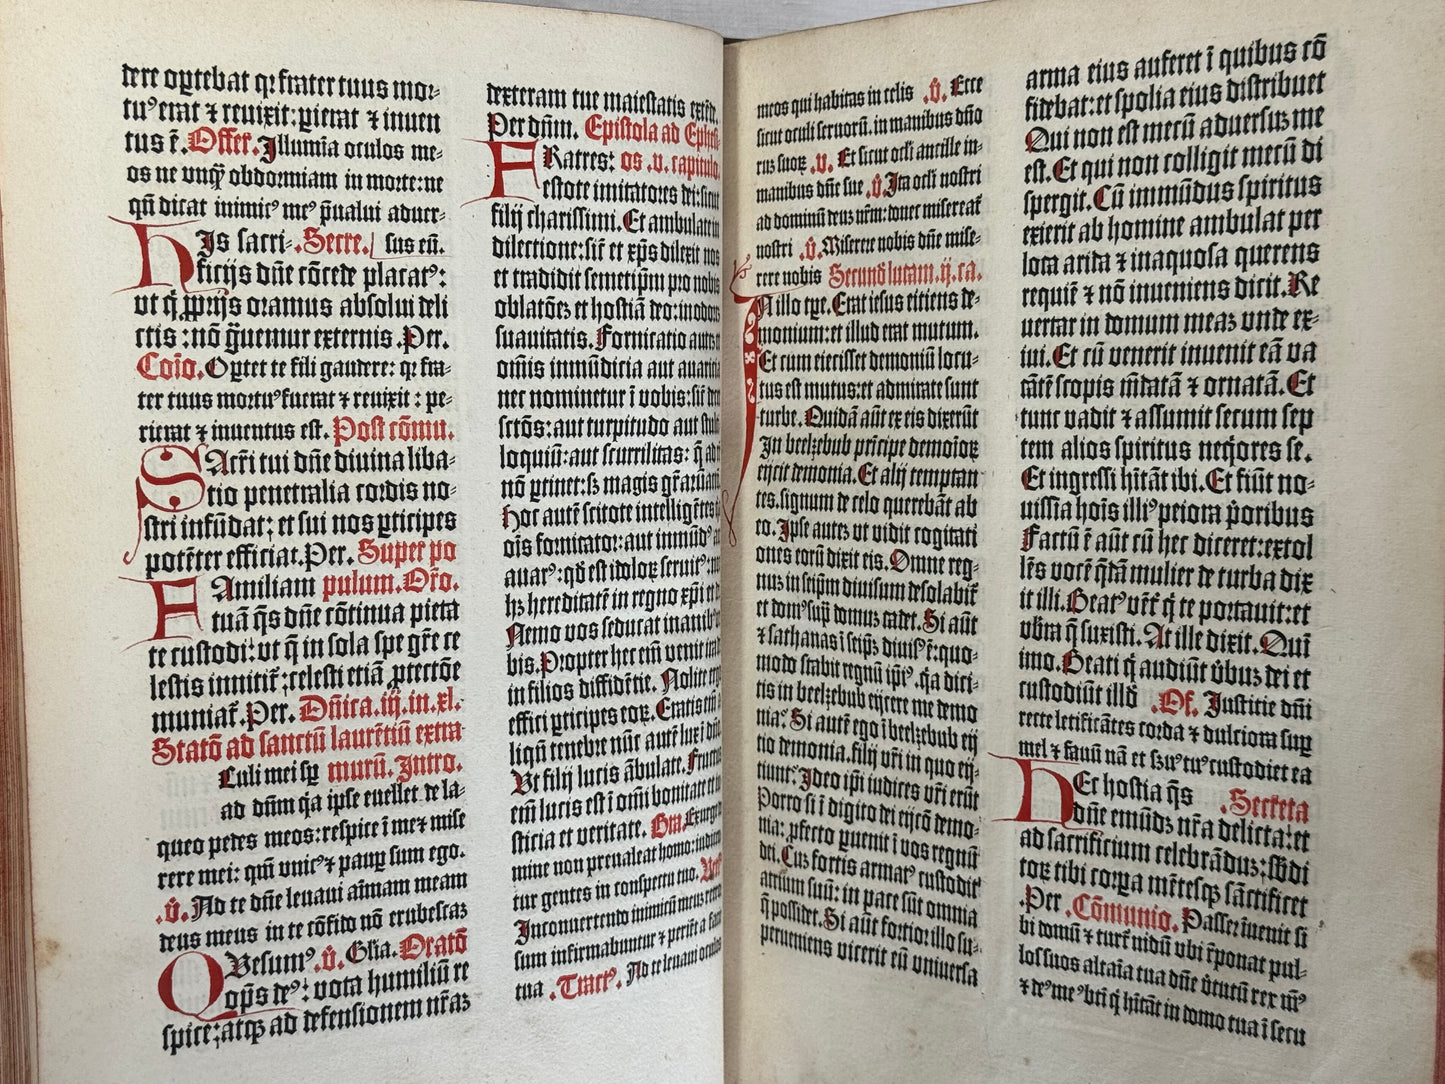 dere oꝑtebat qꝛ frater tuus moꝛ⸗
tuꝰ erat ⁊ reuixit: pierat ⁊ inuen
tus ē. Offer. Illumīa oculos me⸗
os ne vnqꝫ obdormiam in morte: ne
qn̄ dicat inimicꝰ meꝰ p̄ualui aduer⸗
HIs sacri⸗ .Secre. sus eū.
ficijs dn̄e cōcede placatꝰ:
vt q̄ ꝓprijs oramus absolui deli
ctis: nō grauemur externis. Per.
Cōio. Oꝑtet te fili gaudere: qꝛ fra⸗
ter tuus mortuꝰ fuerat ⁊ reuixit: pe⸗
rierat ⁊ inuentus est. Post cōmu.
SAcr̄i tui dn̄e diuina liba⸗
tio penetralia cordis no⸗
stri infūdat: et sui nos ꝑticipes
potēter efficiat. Per. Super po
FAmiliam pulum. Or̄o.
tuā q̄s dn̄e cōtinua pieta
te custodi: vt q̄ in sola spe gr̄e ce
lestis innitit̄: celesti etiā ꝓtectōe
muniat̄. Per. Dn̄ica. iij. in. xl.
Statō ad sanctū laurētiū extra
OCuli mei sp̄ murū. Intro.
ad dn̄m qꝛ ipse euellet de la⸗
queo pedes meos: respice ī me ⁊ mise
rere mei: qm̄ vnicꝰ ⁊ pauꝑ sum ego.
.v̄. Ad te dn̄e leuaui aīmam meam
deus meus in te cōfido nō erubescaꝫ
QVesumꝰ .v̄. Glīa. Oratō
oꝑs deꝰ: vota humiliū re
spice: atqꝫ ad defensionem nr̄aꝫ
dexteram tue maiestatis extēde.
Per dn̄m. Epistola ad Ephesi⸗
FRatres: os .v. capitulo.
estote imitatores dei: sicut
filij charissimi. Et ambulate in
dilectione: sic̄ et xp̄s dilexit nos
et tradidit semetipm̄ pro nobis
oblatōeꝫ et hostiā deo: in odorē
suauitatis. Fornicatio auteꝫ et
om̄is immūdicia aut auaricia
nec nominetur ī vobis: sic̄ decet
sctōs: aut turpitudo aut stulti
loquiū: aut scurrilitas: q̄ ad rē
nō ꝑtinet: sꝫ magis gr̄aꝝ actio.
hoc autē scitote intelligētes qꝛ
oīs fornicator: aut immūdꝰ aut
auarꝰ: qd̄ est idoloꝝ seruitꝰ: nō
hꝫ hereditatē in regno xp̄i et dei
Nemo vos seducat inanibꝰ ver⸗
bis. Propter hec em̄ venit ira dei
in filios diffidētie. Nolite ergo
effici ꝑticipes eoꝝ. Eratis em̄ ali
liqn̄ tenebre nūc autē lux ī dn̄o
Vt filij lucis ābulate. Fructus
em̄ lucis est ī om̄i bonitate et iu
sticia et veritate. Gra. Exurge do
mine non preualeat homo: iudicen
tur gentes in conspectu tuo. Vers.
Inconuertendo inimicū meuꝫ retro
sum infirmabuntur ⁊ periēt a facie
tua .Tractꝰ. Ad te leuaui oculos
meos qui habitas in celis .v̄. Ecce
sicut oculi seruorū. in manibus dn̄o
ruꝫ suoꝝ .v̄. Et sicut oculi ancille in⸗
manibus dn̄e sue .v̄. Ita ocl̄i nostri
ad dominū deuꝫ nr̄m: donec misereat̄
nostri .v̄. Miserere nobis dn̄e mise⸗
rere nobis Secundū lucam. ij. ca.
IN illo tꝑe. Erat iesus eitiens de⸗
monium: et illud erat mutum.
Et cum eiecisset demoniū locu⸗
tus est mutus: et admirate sunt
turbe. Quidā aūt ex eis dixerūt
In beelzebub prīcipe demoīoꝝ
eijcit demonia. Et alij temptan
tes. signum de celo querebāt ab
eo. Ipse auteꝫ ut vidit cogitati
ones eorū dixit eis. Omne reg⸗
nuꝫ in seipm̄ diuisum desolabit̄
et domꝰ supꝑ domuꝫ cadet. Si aūt
⁊ sathanas ī seipꝫ diuisꝰ ē: quo⸗
modo stabit regnū ipīꝰ. qꝛ dici⸗
tis in beelzebub eijcere me demo
nia. Si autē ego ī beelzebub eij
cio demonia. filij vr̄i in quo eij⸗
tiunt. Ideo ip̄i iudices vr̄i erūt
Porro si ī digito dei eijcō demo⸗
nia: ꝓfecto ꝑuenit ī vos regnū
dei. Cuꝫ fortis armatꝰ custodit
atrium suū: in pace sūt omnia
q̄ possidet. Si aūt fortior illo su⸗
perueniens vicerit eū vniuersa
arma eius auferet ī quibus cō
fidebat: et spolia eius distribuet
Qui non est mecū aduersuꝫ me
est. Et qui non colligit mecū di
spergit. Cū immūdus spiritus
exierit ab homine ambulat per
loca arida ⁊ inaquosa querens
requiē ⁊ nō inueniens dicit. Re
uertar in domum meaꝫ vnde ex⸗
iui. Et cū venerit inuenit eā va
cātē scopis mūdatā ⁊ ornatā. Et
tunc vadit ⁊ assumit secum sep
tem alios spiritus neqͦres se.
Et ingressi hītāt ibi. Et fiūt no⸗
uissīa hoīs illiꝰ peiora p̄oribus
Factū ē aūt cū hec diceret: extol
lēs vocē q̄dā mulier de turba dix
it illi. Beatꝰ vēt̄ q̄ te portauit: et
vb̄ra q̄ suxisti. At ille dixit. Quī
imo. Beati q̄ audiūt v̄buꝫ dei et
custodiūt illd̄ .Of. Iusticie dn̄i
recte letificātes corda ⁊ dulciora supꝑ
mel ⁊ fauū nā et ẜuꝰ tuꝰ custodiet ea
HEc hostia q̄s .Secreta
dn̄e emūdꝫ nr̄a delicta: et
ad sacrificium celebrāduꝫ: sb̄di
toꝝ tibi corꝑa mētesqꝫ sāctificet
.Per .Cōmunio. Passer īuenit si
bi domū ⁊ turt̄ nidū vbi r̄ponat pul⸗
los suos altaīa tua dn̄e v̄tutū rex mꝰ
⁊ dꝰ meꝰ bt̄i q̄ hītāt in domo tua ī secu